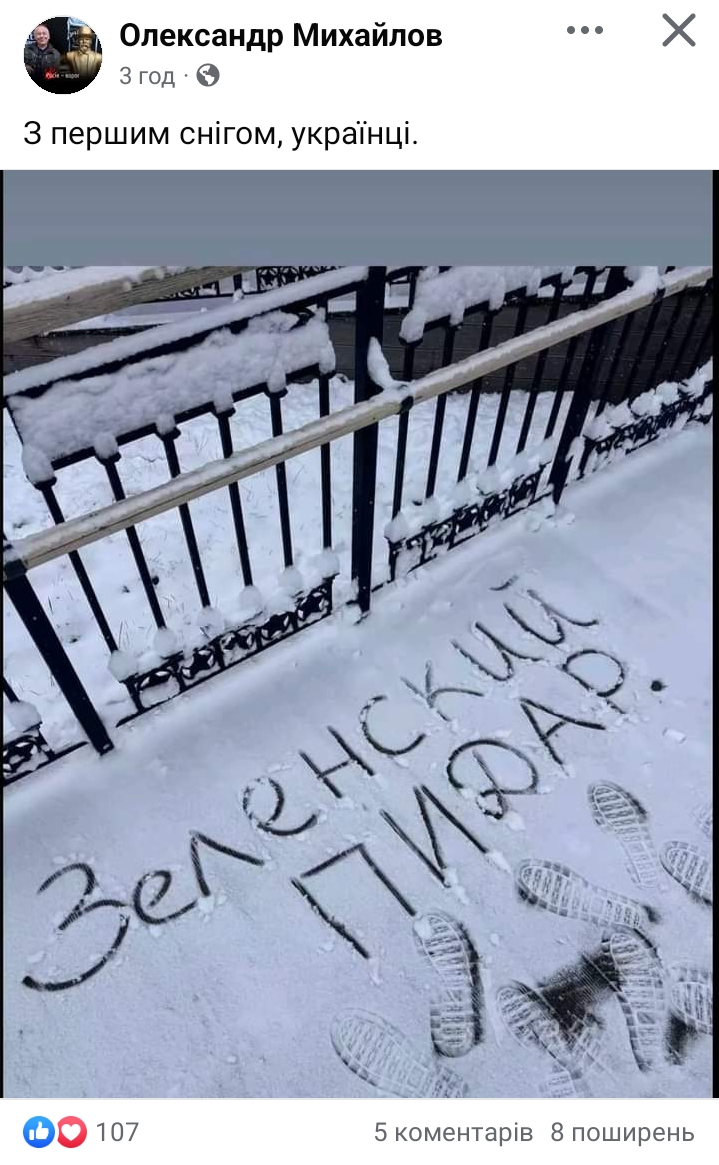 Олександр Михайлов
3 год ·
З першим снігом, українці.
Зеленский
ПИДАР.
107
5 коментарів 8 поширень